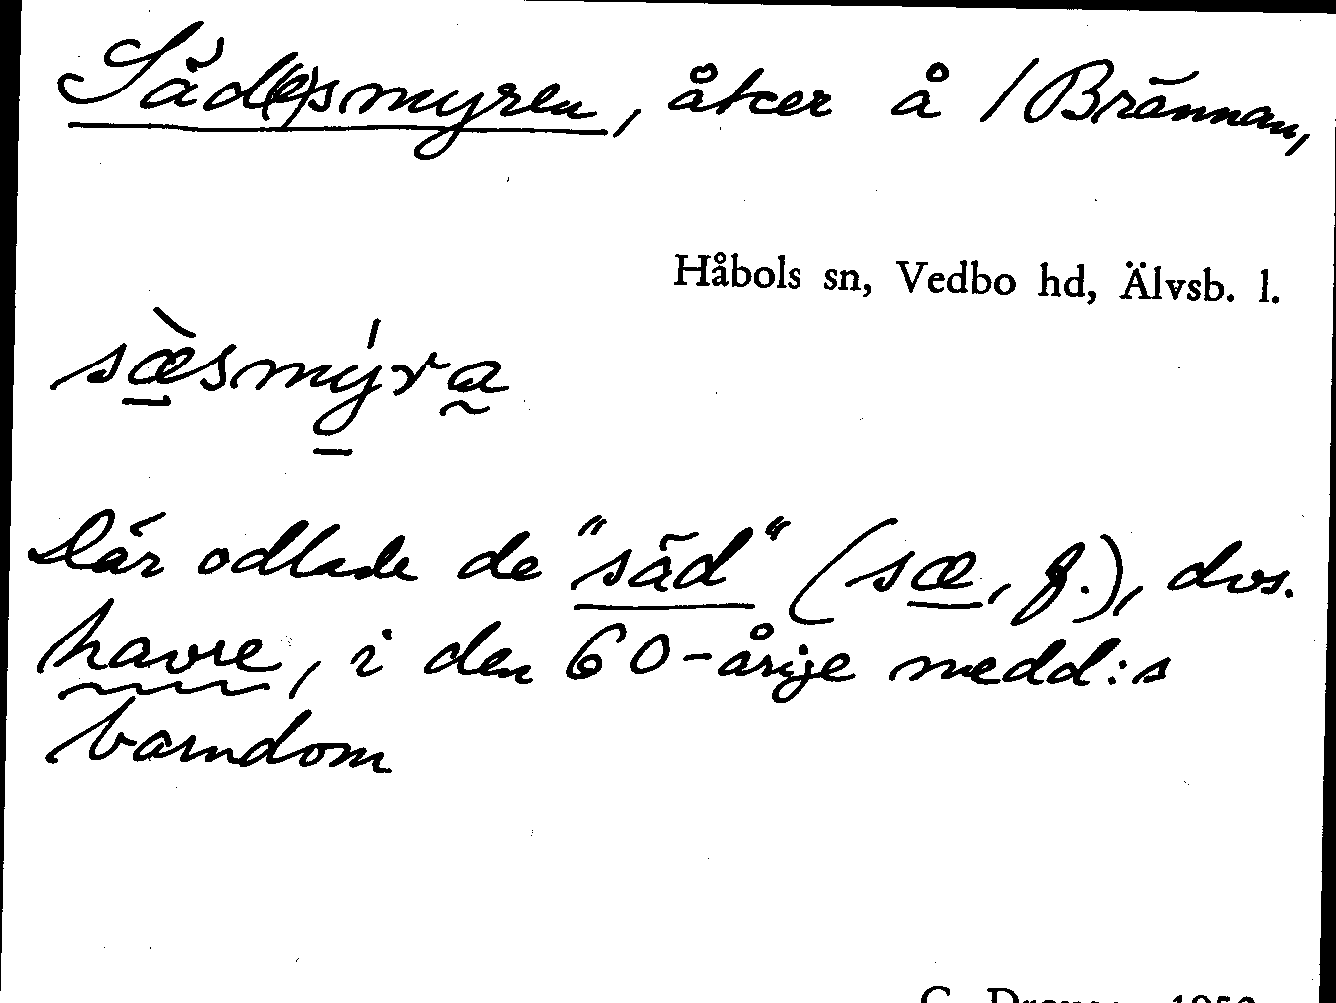 Säd(e)smyren, åker å /Brännan,
Håbols sn, Vedbo hd, Älvsb. l.
sæ̀smýra
Där odlade de "säd" (sæ, f.), dvs.
havre, i den 60-årige medd:s
barndom